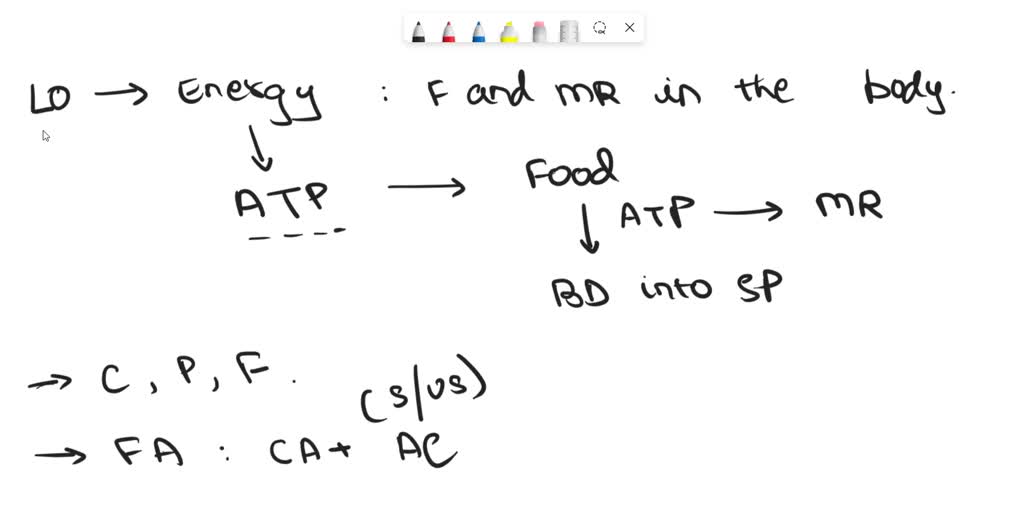 LO → Energy : F and MR in the body.
↓
ATP → Food
↓ ATP → MR
BD into SP
→ C, P, F.
(S/US)
→ FA : CA + AC